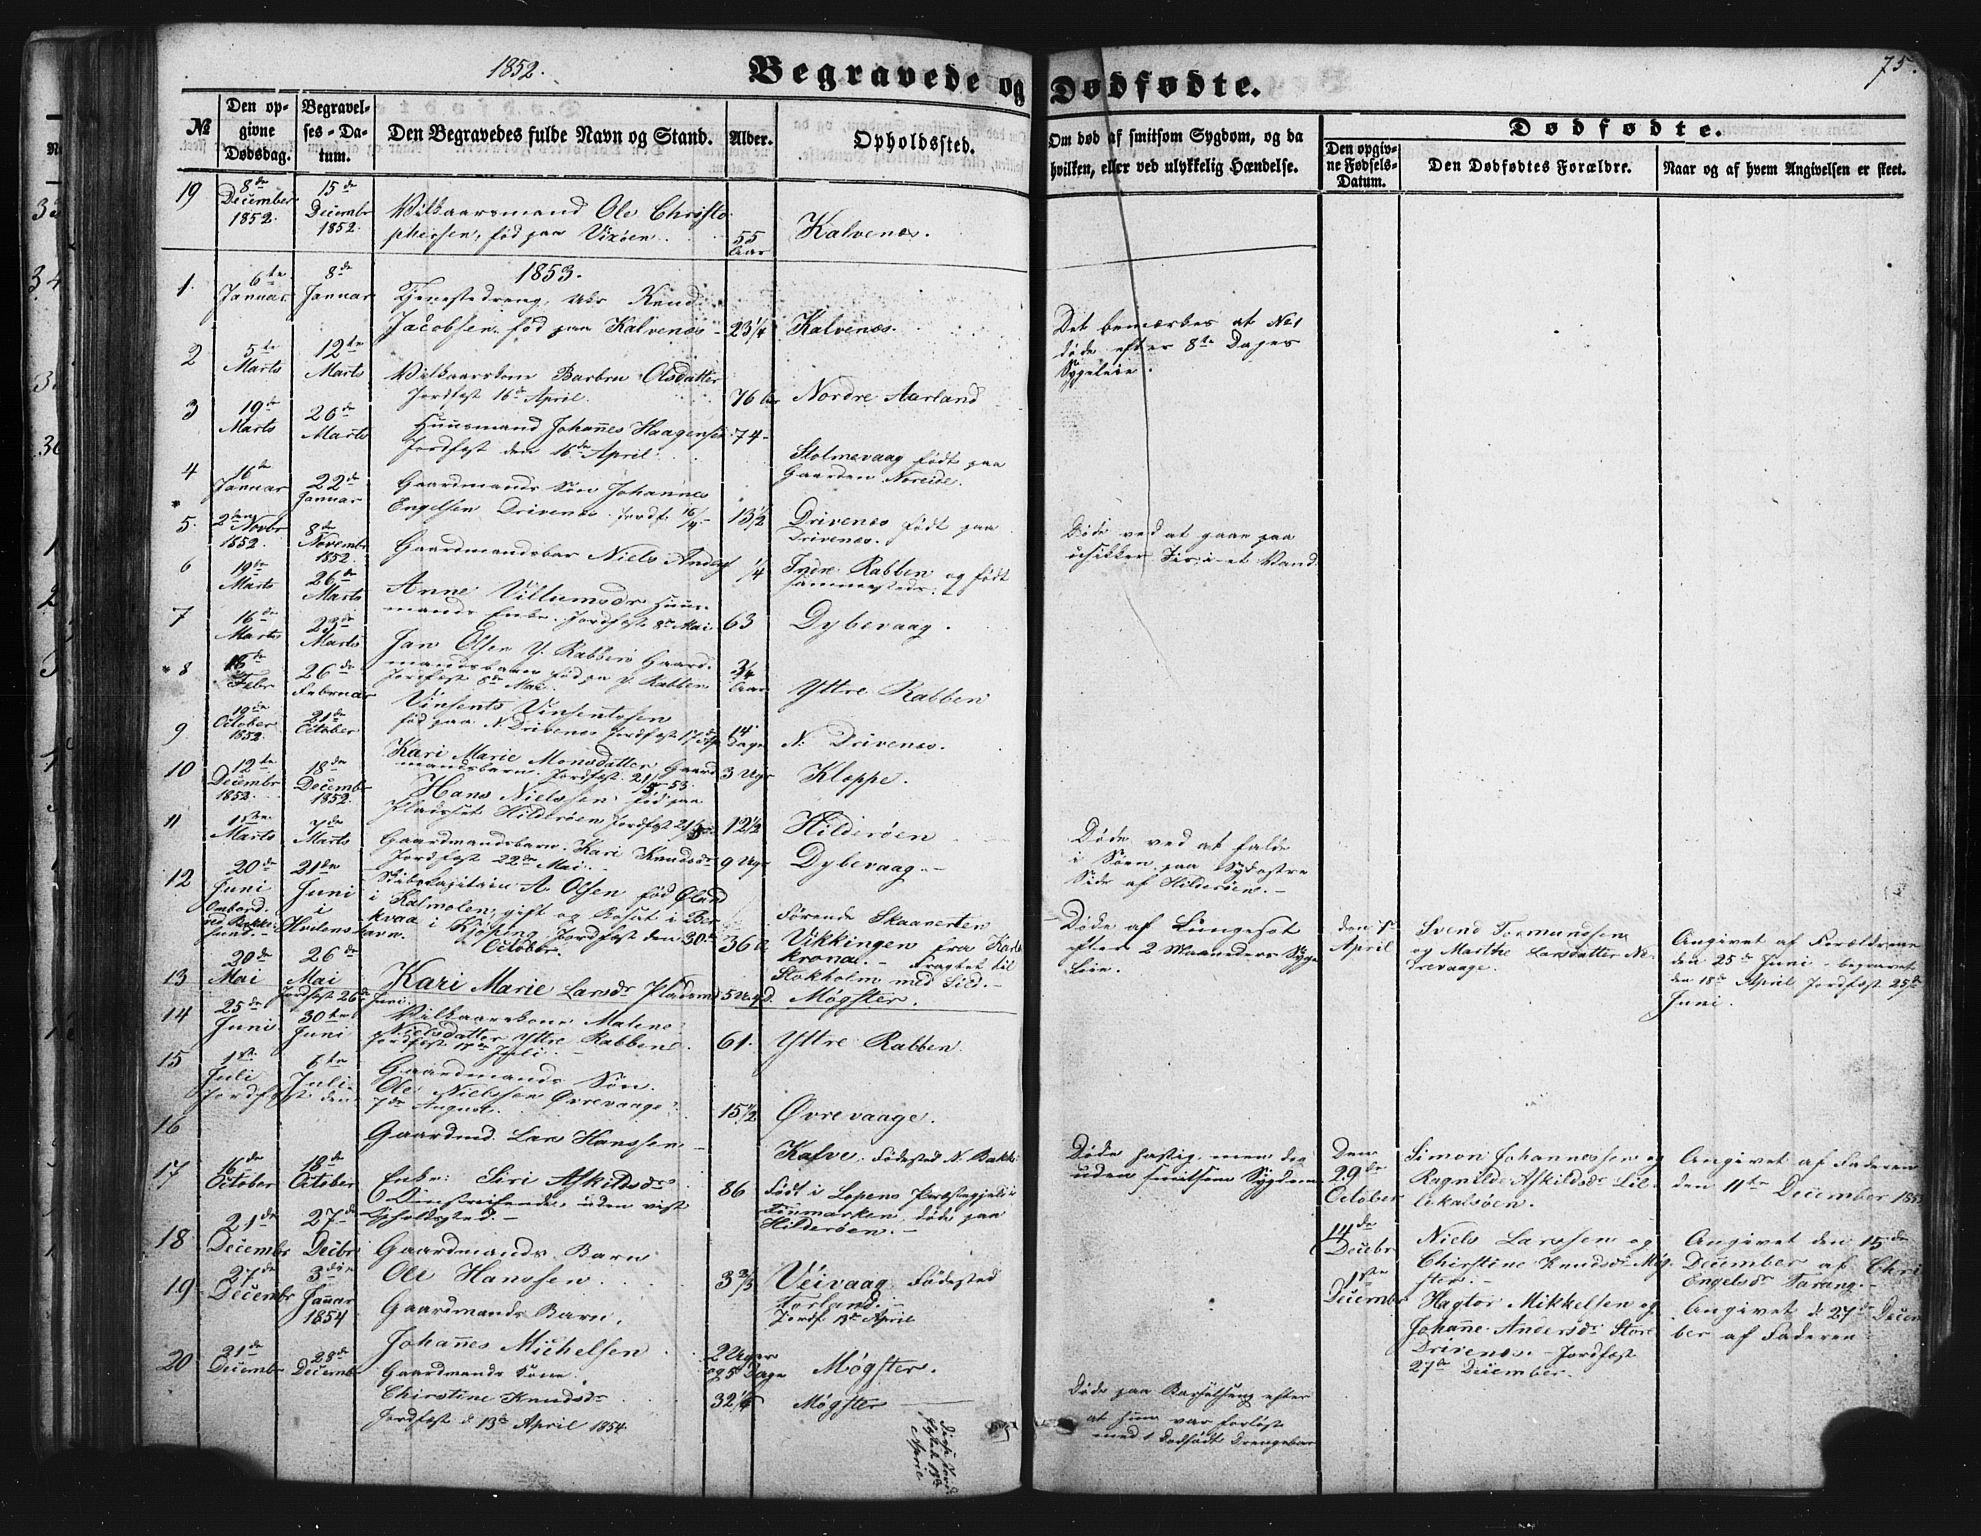 1852.
Begravede og Dødfødte.
75.
№
Den opgivne Dødsdag.
Begravelses-Datum.
Den Begravedes fulde Navn og Stand.
Alder.
Opholdssted.
Om død af smitsom Sygdom, og da hvilken, eller ved ulykkelig Hændelse.
Dødfødte.
Den opgivne Fødsels-Datum.
Den Dødfødtes Forældre.
Naar og af hvem Angivelsen er skeet.
19 8de December 1852. 15de Decembr 1852. Vilkaarsmand Ole Christo-
phersen, fød paa Vixøen. 55 Aar Kalvenes.
1853.
1. 6te Januar 8de Januar Tjenestedreng, Knud
Jacobsen fød paa Kalvenes 23 1/4 Kalvenes.
Det bemærkes at No 1
døde efter 8te Dages
Sygeleie.
2 5te Marts 12te Marts Vilkaarskone Barbru Olsdatter
Jordfæst 16de April. 76 Nordre Aarland
3 19de Marts 26de Marts Huusmand Johannes Haagensen 74
Jordfæst den 16de April
Stolmevaag født paa
Gaarden Noreide.
4 16de Januar 22de Januar Gaardmands Søn Johannes
Engelsen Drivenes Jordf. 16/4 13 1/2 Drivenes født paa
Drivenes.
Døde ved at gaae paa
usikker Iis i et Vand.
5. Novbr 1852. 8de Novembr 1852. Gaardmandsbar Niels Anders 1/4 Indre Rabben og født
sammesteds.
6 19de Marts 26de Marts Anne Villumsdr Huus-
mands Enke. Jordfæst 8de Mai 63 Dybevaag.
7 16de Marts 23de Marts Jan Olsen Y. Rabben Gaard-
mandsbarn fød paa Y. Rabben
Jordfæst 8de Mai. 3/4 Aar Yttre Rabben
8 Febr 26de Februar Vinsents Vinsentsen
fød paa N. Drivenes Jordfæst 14 Dage N. Drivenes.
9 19de October 1852. 21de October Kari Marie Monsdatter Gaard-
mandsbarn. Jordfæst 3 Uger Kloppe.
10 12te Decembr 1852. 18de Decembr 1852. Hans Nielssen fød paa
Pladset Hilderøen Jordfæst 12 1/2 Hilderøen
Døde ved at falde
i Søen paa Sydøstre
Side af Hilderøen.
11 Marts 7de Marts Gaardmandsbarn Kari Knudsdr
Jordfæst 22de Mai. 9 Uger Dybevaag.
12 20de Juni 21de Juni i Hvitens havn.
Skibscapitain A Olsen fød Øland
i Kalmolen, gift og Bosat i
i Kjøping, Jordfæst den 30de
October. 36 Førende Skaanerten
Vikkingen fra Karls
krona. Fragtet til
Stokholm med Sild.
Døde af Lungesot
efter 2 Maaneders Syge
leie.
April
Svend Tormundssen
og Marthe Larsdatter Ne-
drevaage.
Angivet af Forældrene
den 25de Juni begravet
den 18de April Jordfæst 25de
Juni.
13 20de Mai 26de Mai Kari Marie Larsdr Pladsmd 5 Møgster.
Jordfæst 26de Juni.
14 25de Juni 30te Juni Vilkaarskone Malene
Nielsdatter Yttre Rabben
Jordfæst 17de Juli. 61. Yttre Rabben.
15 1ste Juli 6te Juli Gaardmands Søn
Ole Nielssen Øvrevaage
Jordfæst den 7de August. 15 1/2 Øvrevaage.
16 Gaardmd. Lars Hanssen Kalve. Fødested N. Bakke
Døde hastig, men dog
uden smitsom Sygdom
Den 29de October
Simon Johannessen og
Ragnilde Askildsdr Lil-
lekalsøen.
Angivet af Faderen
den 11te December 1853
17 16de October 18de October Enke: Siri Askildsdr
Omstreifende, uden vist
Opholdssted. 86 Født i Lopens Præstegjeld i
Finmarken, døde paa
Hilderøen.
14de Decbr
Niels Larssen og
Christine Knudsdr Møg-
ster.
Angivet den 15de
December af Chri
Engelsdr Tarang.
18 21de Decembr 27de Decbr Gaardmands Barn
Ole Hanssen 3 Veivaag. Fødested
Torland.
Jordf 13de April
1ste Decembr
Hagtor Mikkelsen og
Johanne Andersdr Store
Drivenes. Jordfæst
27de December.
Angivet d 27de Decem
ber af Faderen
19 27de Decembr 3die Januar 1854 Gaardmands Barn.
Johannes Michelsen 2 Uger
og 5 Dage Møgster.
20 21de Decembr 28de Decembr Gaardmands Kone
Christine Knudsdr
Jordfæst d. 13de April 1854. 32 Møgster
Døde paa Barselseng efter
at hun var forløst
med 1 dødfødt Drengebarn